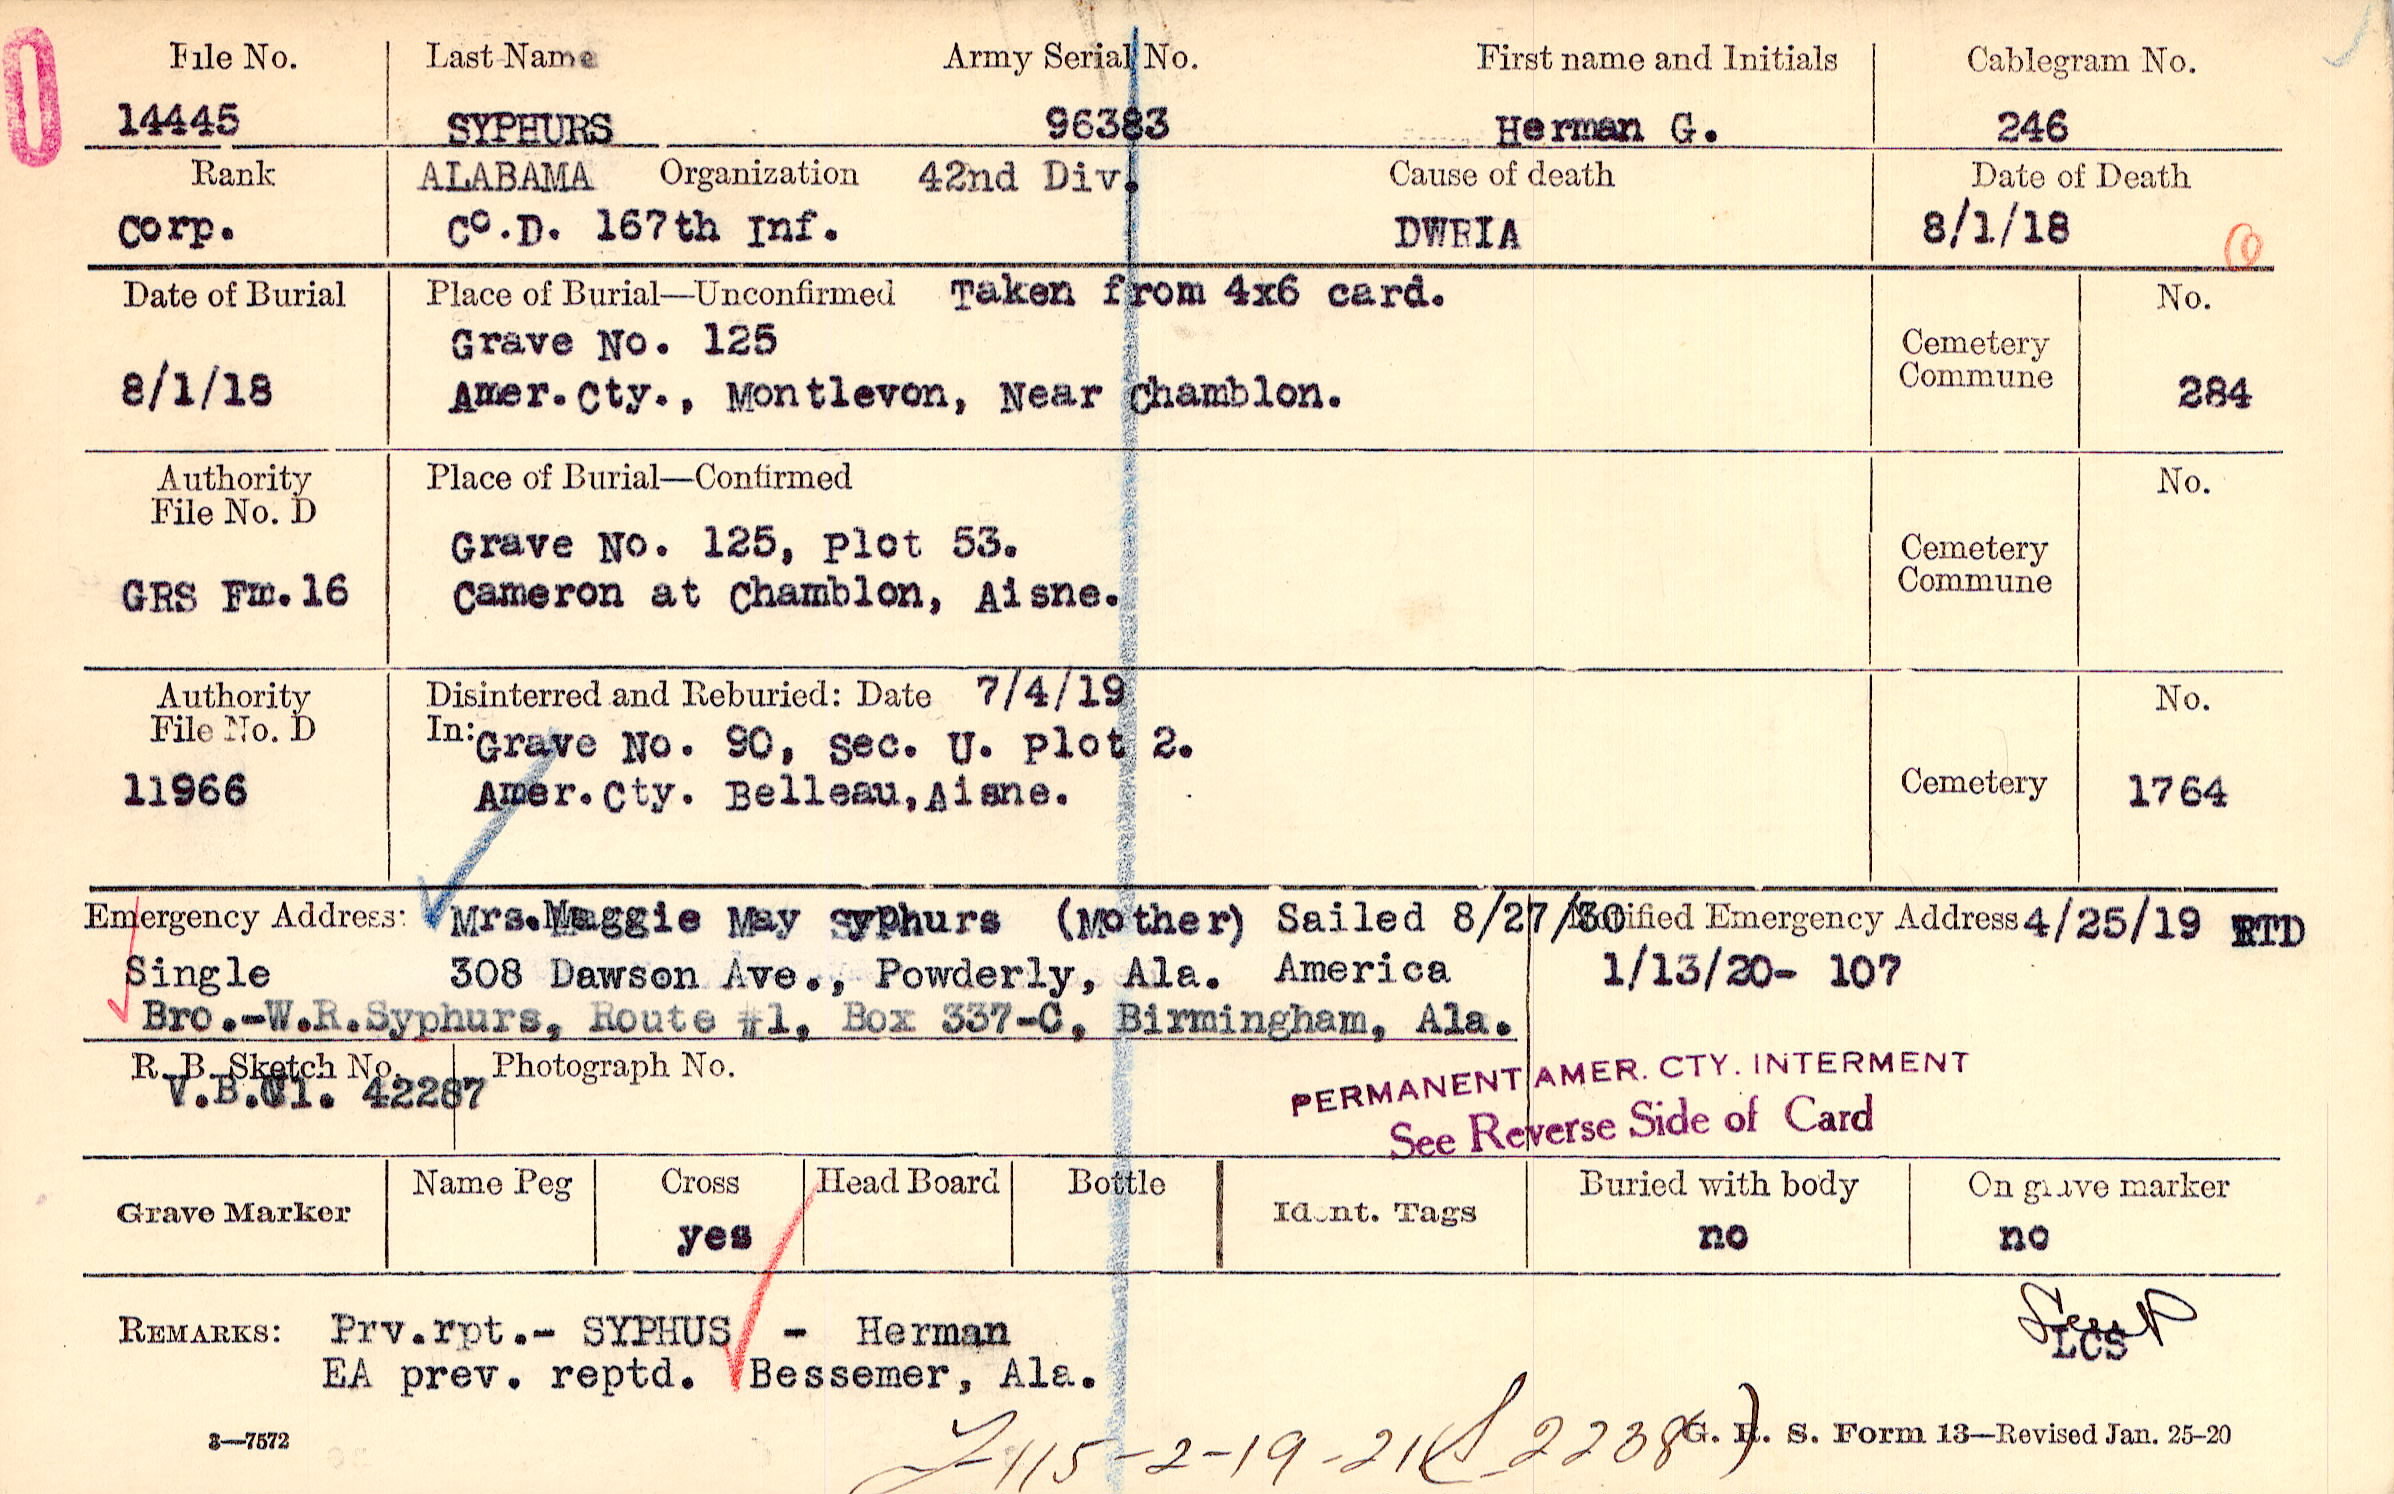 File No. Last Name Army Serial No. First name and Initials Cablegram No.
14445 SYPHURS 96383 Herman G. 246
Rank ALABAMA Organization 42nd Div. Cause of death Date of Death
Corp. Co.D. 167th Inf. DWRIA 8/1/18
Date of Burial Place of Burial—Unconfirmed Taken from 4x6 card. No.
Grave No. 125
8/1/18 Amer.Cty., Montlevon, Near Chamblon. Cemetery Commune 284
Authority File No. D Place of Burial—Confirmed No.
Grave No. 125, Plot 53.
GRS Fm.16 Cameron at Chamblon, Aisne. Cemetery Commune
Authority File No. D Disinterred and Reburied: Date 7/4/19 No.
In: Grave No. 90, Sec. U. Plot 2.
11966 Amer.Cty. Belleau,Aisne. Cemetery 1764
Emergency Address: Mrs.Maggie May Syphurs (Mother) Sailed 8/27/30 Notified Emergency Address 4/25/19 RTD
Single 308 Dawson Ave., Powderly, Ala. America 1/13/20- 107
Bro.-W.R.Syphurs, Route #1, Box 337-C, Birmingham, Ala.
R. B. Sketch No. Photograph No.
V.B.Cl. 42287
PERMANENT AMER. CTY. INTERMENT
See Reverse Side of Card
Grave Marker Name Peg Cross Head Board Bottle Ident. Tags Buried with body On grave marker
yes no no
REMARKS: Prv.rpt.- SYPHUS - Herman
LCS
EA prev. reptd. Bessemer, Ala.
115-2-19-21 2238
3—7572 G. R. S. Form 13—Revised Jan. 25-20